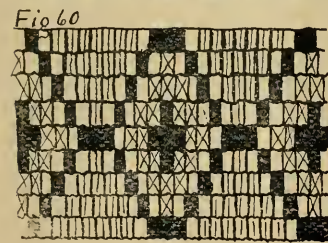 Fig 60